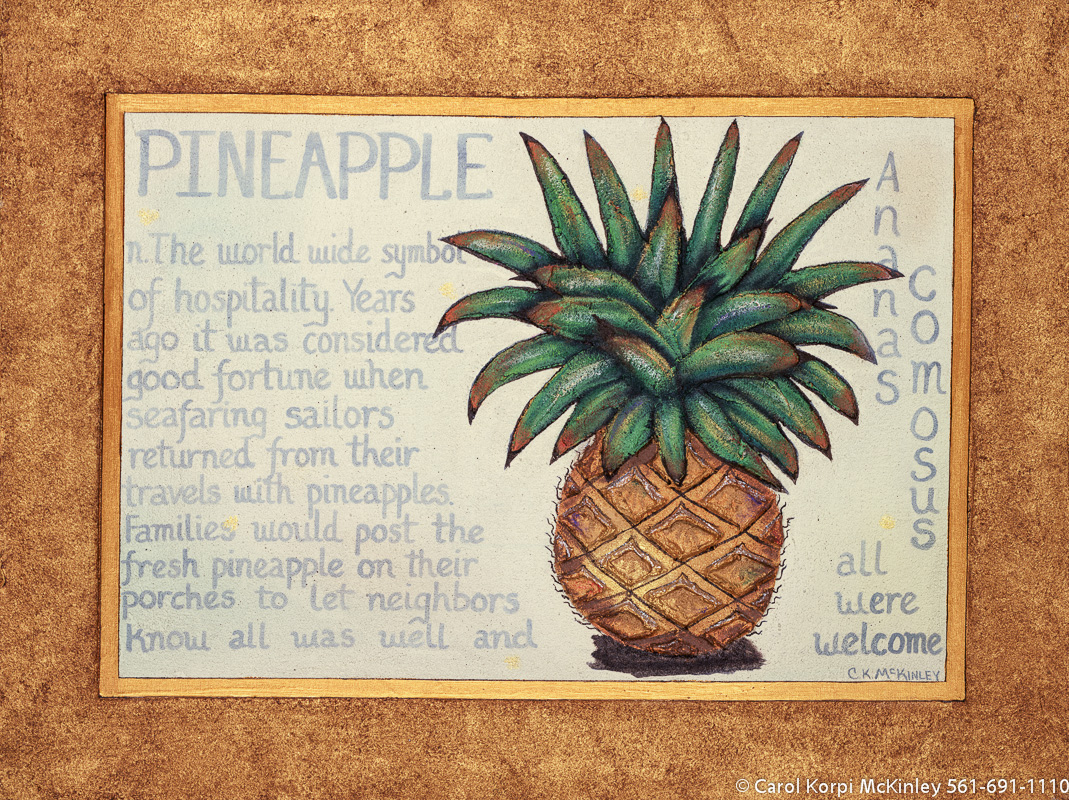 PINEAPPLE
n. The world wide symbol
of hospitality. Years
ago it was considered
good fortune when
seafaring sailors
returned from their
travels with pineapples.
Families would post the
fresh pineapple on their
porches to let neighbors
know all was well and
all
were
welcome
Ananas
Comosus
C.K. McKINLEY
© Carol Korpi McKinley 561-691-1110